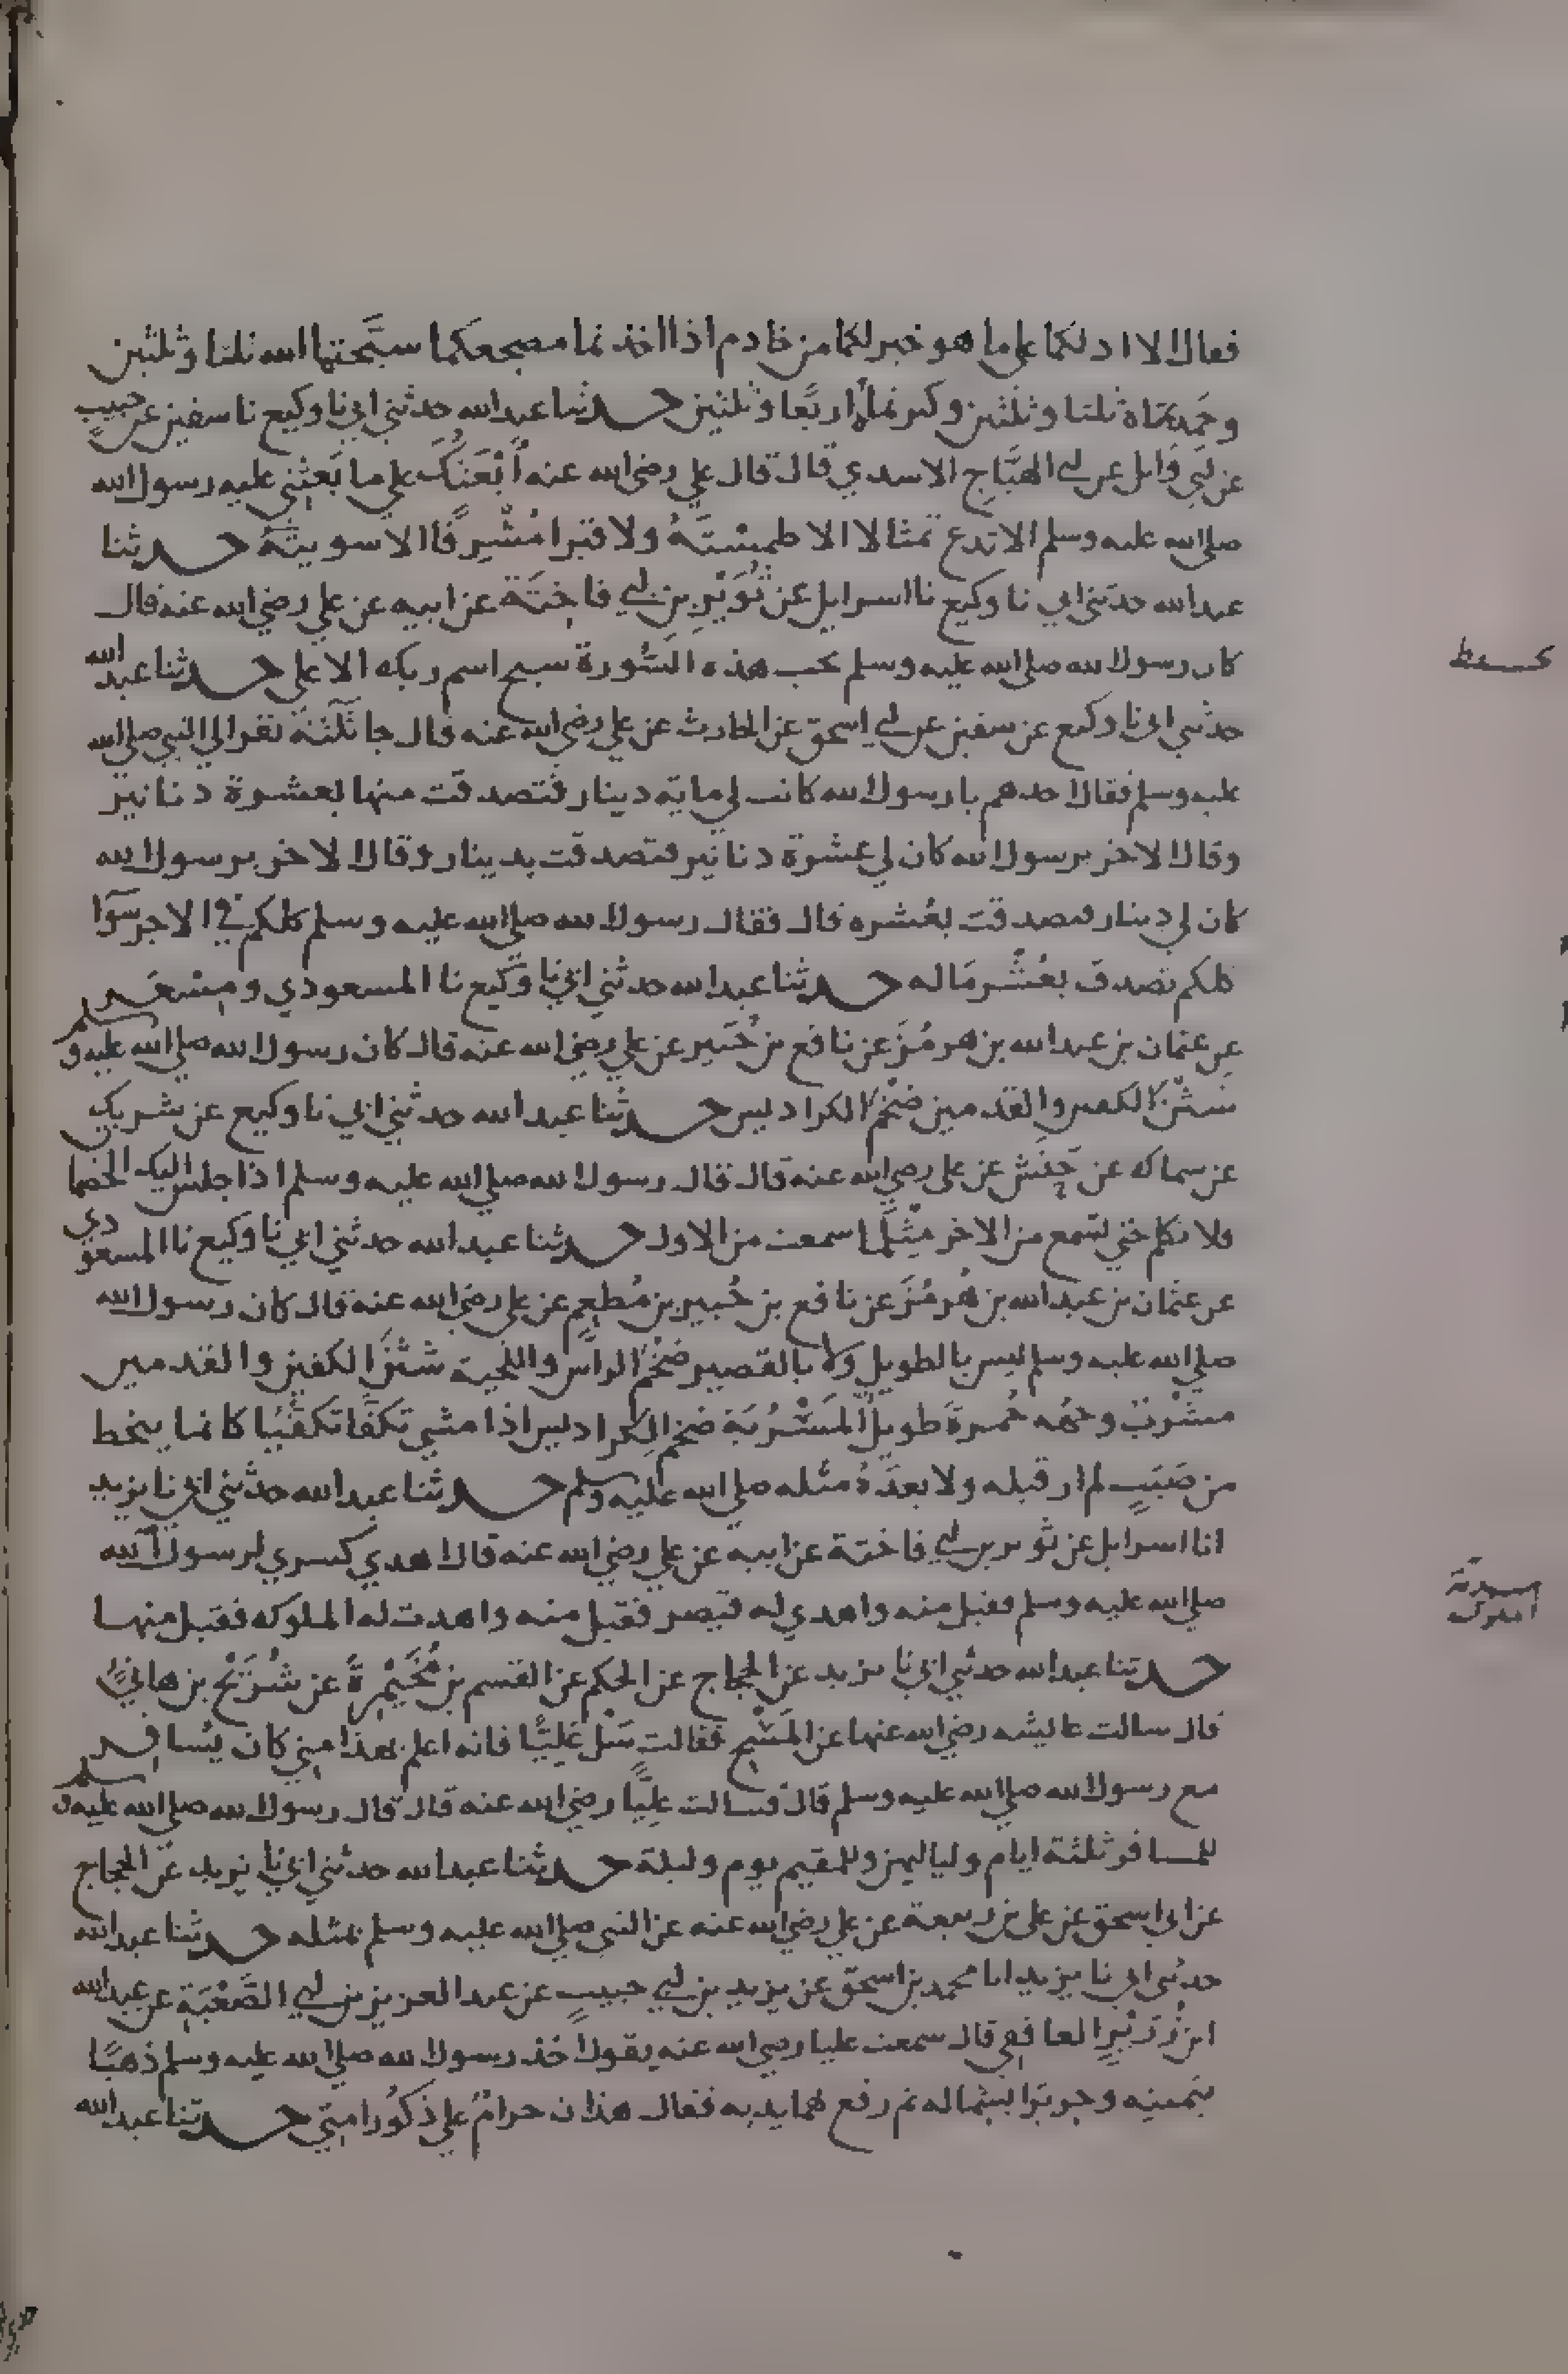 فقال الا ادلكما على ما هو خير لكما من خادم اذا اخذتما مضجعكما سبحتما الله ثلثا وثلثين
وحمدتماه ثلثا وثلثين وكبرتماه اربعا وثلثين حدثنا عبدالله حدثني ابي نا وكيع نا سفين عن حبيب
عن ابي وائل عن ابي الهياج الاسدي قال قال علي رضي الله عنه أبعثك على ما بعثني عليه رسول الله
صلى الله عليه وسلم الا تدع تمثالا الا طمسته ولا قبرا مشرفا الا سويته حدثنا
عبدالله حدثني ابي نا وكيع نا اسرايل عن ثوير بن ابي فاختة عن ابيه عن علي رضي الله عنه قال
كان رسول الله صلى الله عليه وسلم يحب هذه السورة سبح اسم ربك الاعلى حدثنا عبدالله
حدثني ابي نا وكيع عن سفين عن ابي اسحق عن الحارث عن علي رضي الله عنه قال جا ثلثة نفر الي النبي صلى الله
عليه وسلم فقال احدهم يا رسول الله كانت لي ماية دينار فتصدقت منها بعشرة دنانير
وقال الاخر يرسول الله كان لي عشرة دنانير فتصدقت بدينار وقال الاخر يرسول الله
كان لي دينار فتصدقت بعشره قال فقال رسول الله صلى الله عليه وسلم كلكم في الاجر سوا
كلكم تصدق بعشر ماله حدثنا عبدالله حدثني ابي نا وكيع نا المسعودي ومسعر
عن عثمان بن عبدالله بن هرمز عن نافع بن جبير عن علي رضي الله عنه قال كان رسول الله صلى الله عليه وسلم
شثن الكفين والقدمين ضخم الكراديس حدثنا عبدالله حدثني ابي نا وكيع عن شريك
عن سماك عن حنش عن علي رضي الله عنه قال قال رسول الله صلى الله عليه وسلم اذا جلس اليك الخصما
فلا تكلم حتي تسمع من الاخر مثلما سمعت من الاول حدثنا عبدالله حدثني ابي نا وكيع نا المسعودي
عن عثمان بن عبدالله بن هرمز عن نافع بن جبير بن مطعم عن علي رضي الله عنه قال كان رسول الله
صلى الله عليه وسلم ليس بالطويل ولا بالقصير ضخم الراس واللحية شثن الكفين والقدمين
مشرب وجهه حمرة طويل المسربة ضخم الكراديس اذا مشي تكفا تكفيا كانما ينحط
من صبب لم ار قبله ولا بعده مثله صلى الله عليه وسلم حدثنا عبدالله حدثني ابي نا يزيد
انا اسرايل عن ثوير بن ابي فاختة عن ابيه عن علي رضي الله عنه قال اهدي كسري لرسول الله
صلى الله عليه وسلم فقبل منه واهدي له قيصر فقبل منه واهدت له الملوك فقبل منها
حدثنا عبدالله حدثني ابي نا يزيد عن الحجاج عن الحكم عن القسم بن مخيمرة عن شريح بن هاني
قال سالت عايشه رضي الله عنها عن المسح فقالت سل عليا فانه اعلم بهذا مني كان يسافر
مع رسول الله صلى الله عليه وسلم قال فسالت عليا رضي الله عنه قال قال رسول الله صلى الله عليه وسلم
للمسافر ثلثة ايام ولياليهن وللمقيم يوم وليلة حدثنا عبدالله حدثني ابي نا يزيد عن الحجاج
عن ابي اسحق عن علي بن ربيعة عن علي رضي الله عنه عن النبي صلى الله عليه وسلم بمثله حدثنا عبدالله
حدثني ابي نا يزيد انا محمد بن اسحق عن يزيد بن ابي حبيب عن عبد العزيز بن ابي الصعبة عن عبدالله
ابن زرير الغافقي قال سمعت عليا رضي الله عنه يقول اخذ رسول الله صلى الله عليه وسلم ذهبا
بيمينه وحريرا بشماله ثم رفع بهما يديه فقال هذان حرام علي ذكور امتي حدثنا عبدالله